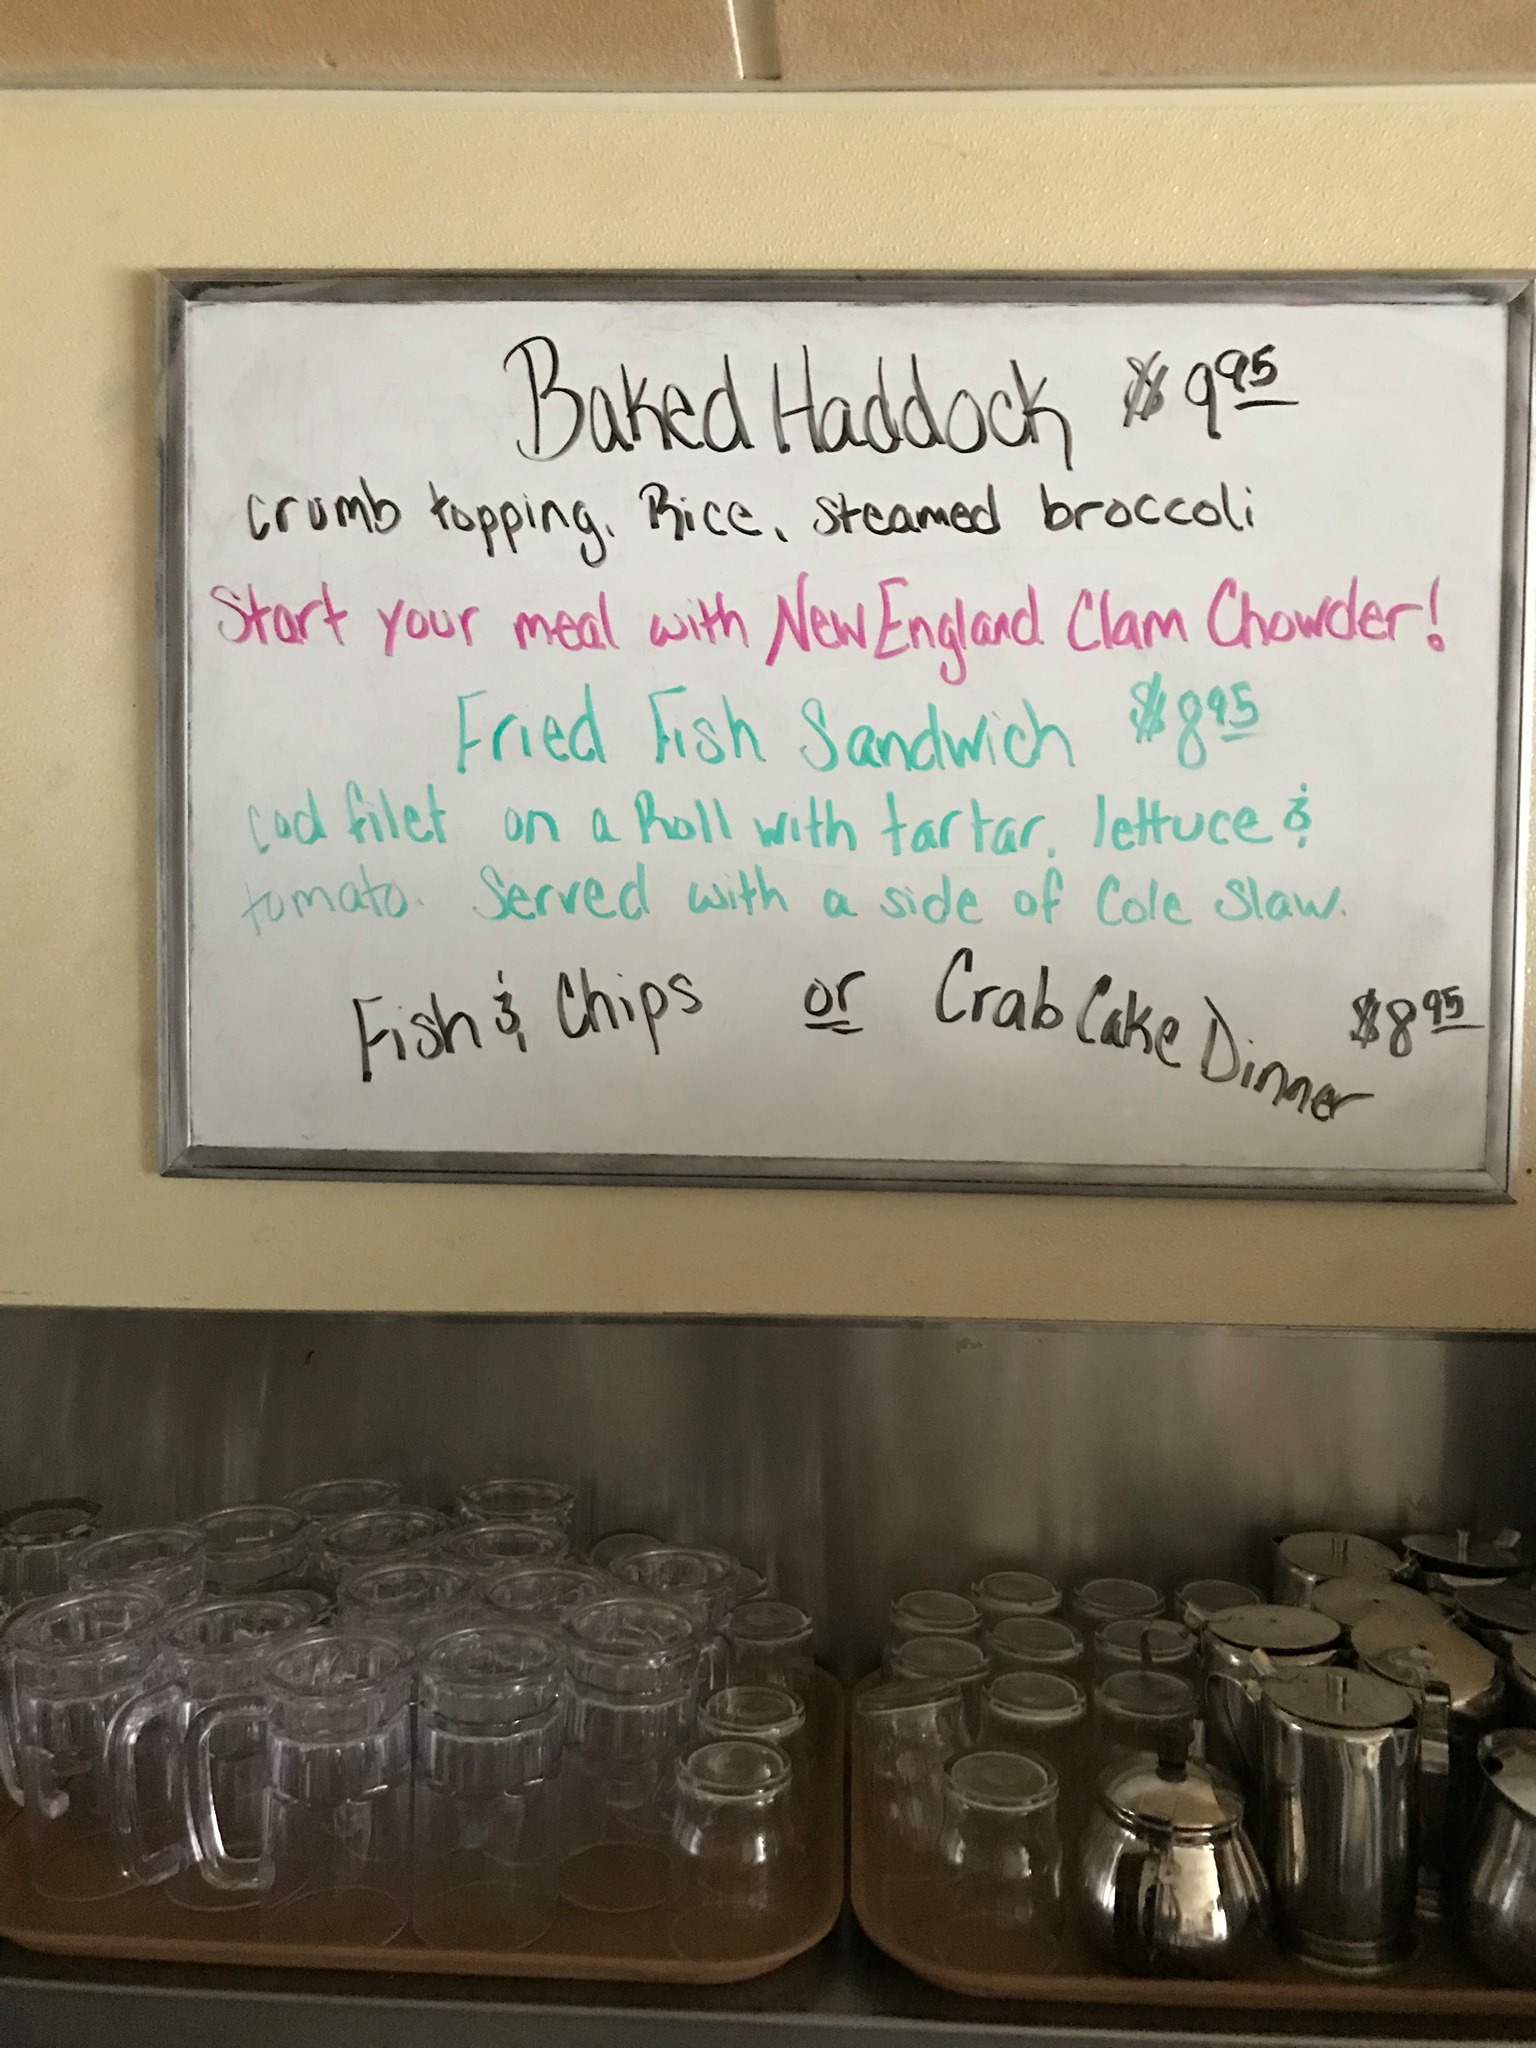 Baked Haddock $9.95
crumb topping, Rice, steamed broccoli
Start your meal with New England Clam Chowder!
Fried Fish Sandwich $8.95
cod filet on a Roll with tartar, lettuce &
tomato. Served with a side of Cole Slaw.
Fish & Chips or Crab Cake Dinner $8.95